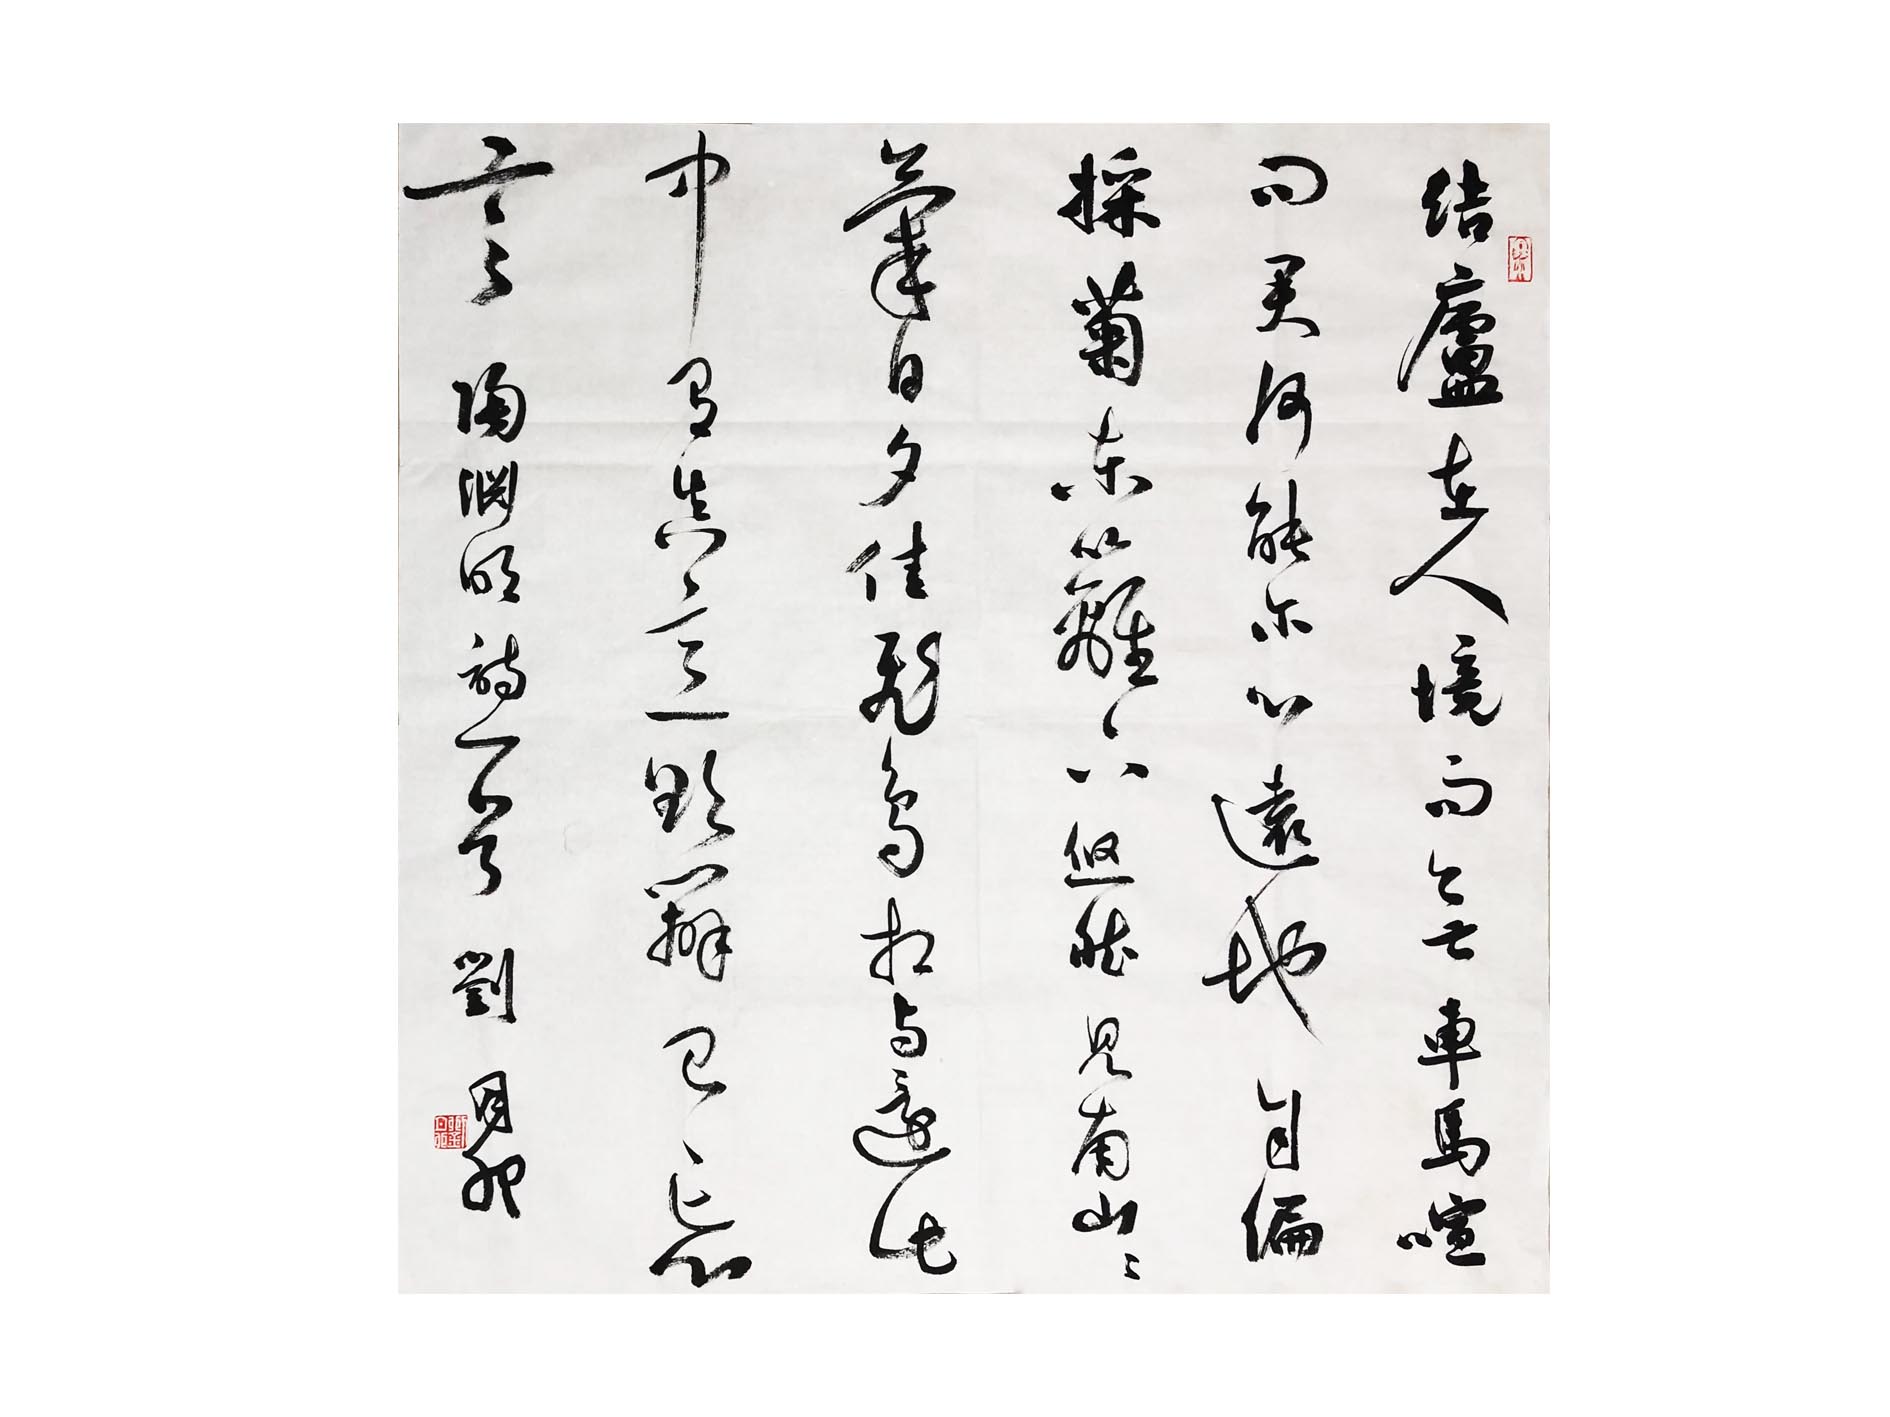 結廬在人境而無車馬喧
問君何能尔心遠地自偏
採菊東籬下悠然見南山〻
氣日夕佳飛鳥相与還此
中有真意欲辯已忘
言 陶淵明詩一首 劉月卯